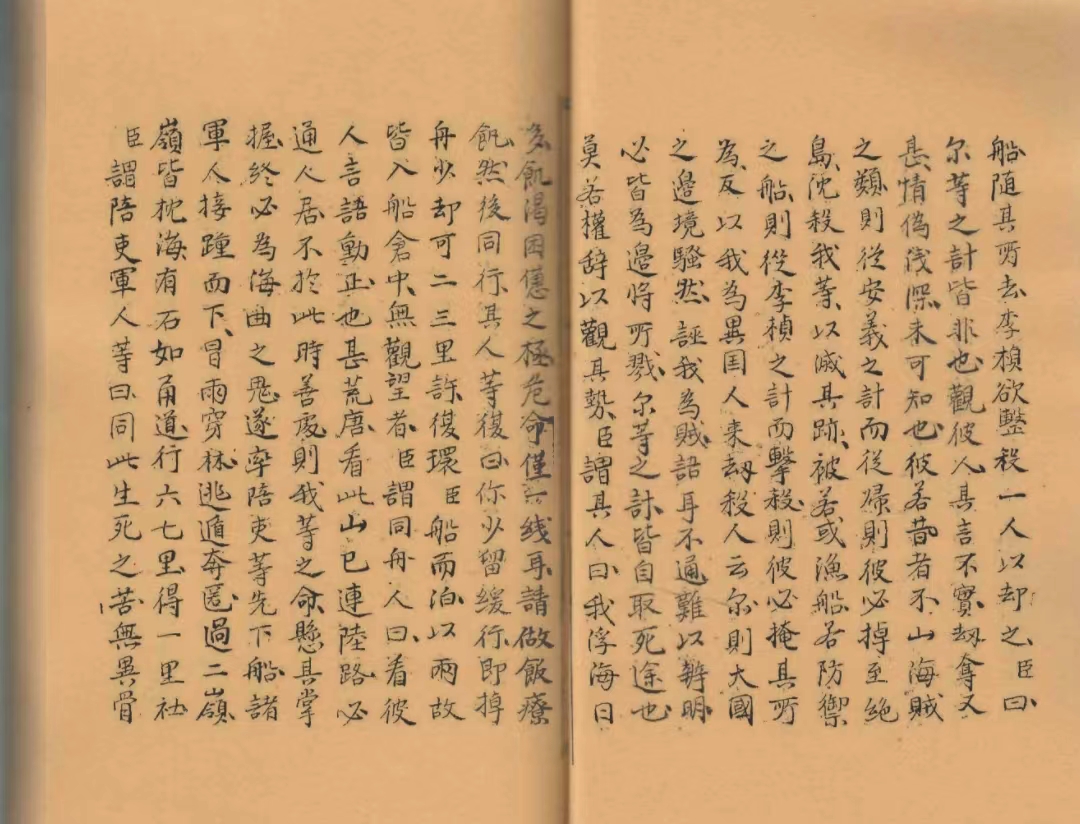 船随其所去李楨欲蹔殺一人以却之臣曰
尔等之計皆非也觀彼人其言不實劫奪又
甚情偽浅深未可知也彼若昔者不山海賊
之類則從安義之計而從㷌則彼必掉至絶
島沈殺我等以滅其跡被若或漁船若防禦
之船則從李楨之計而擊殺則彼必掩其所
為反以我為異国人来刼殺人云尔則大國
之邊境騒然誣我為賊語耳不通難以辨明
必皆為邉将所戮尔等之計皆自取死途也
莫若權辞以觀其勢臣謂其人曰我浮海日
多飢渴困憊之極危命僅一线耳請做飯療
飢然後同行其人等復曰你少留缓行即掉
舟少却可二三里許復環臣船而泊以雨故
皆入船倉中無觀望者臣謂同舟人曰看彼
人言語動止也甚荒唐看此山已連陸路必
通人居不於此時善處則我等之命懸其掌
握終必為海曲之鬼遂率陪吏等先下船諸
軍人接踵而下冒雨穿林逃遁奔匿過二嶺
嶺皆枕海有石如甬道行六七里得一里社
臣謂陪吏軍人等曰同此生死之苦無異骨